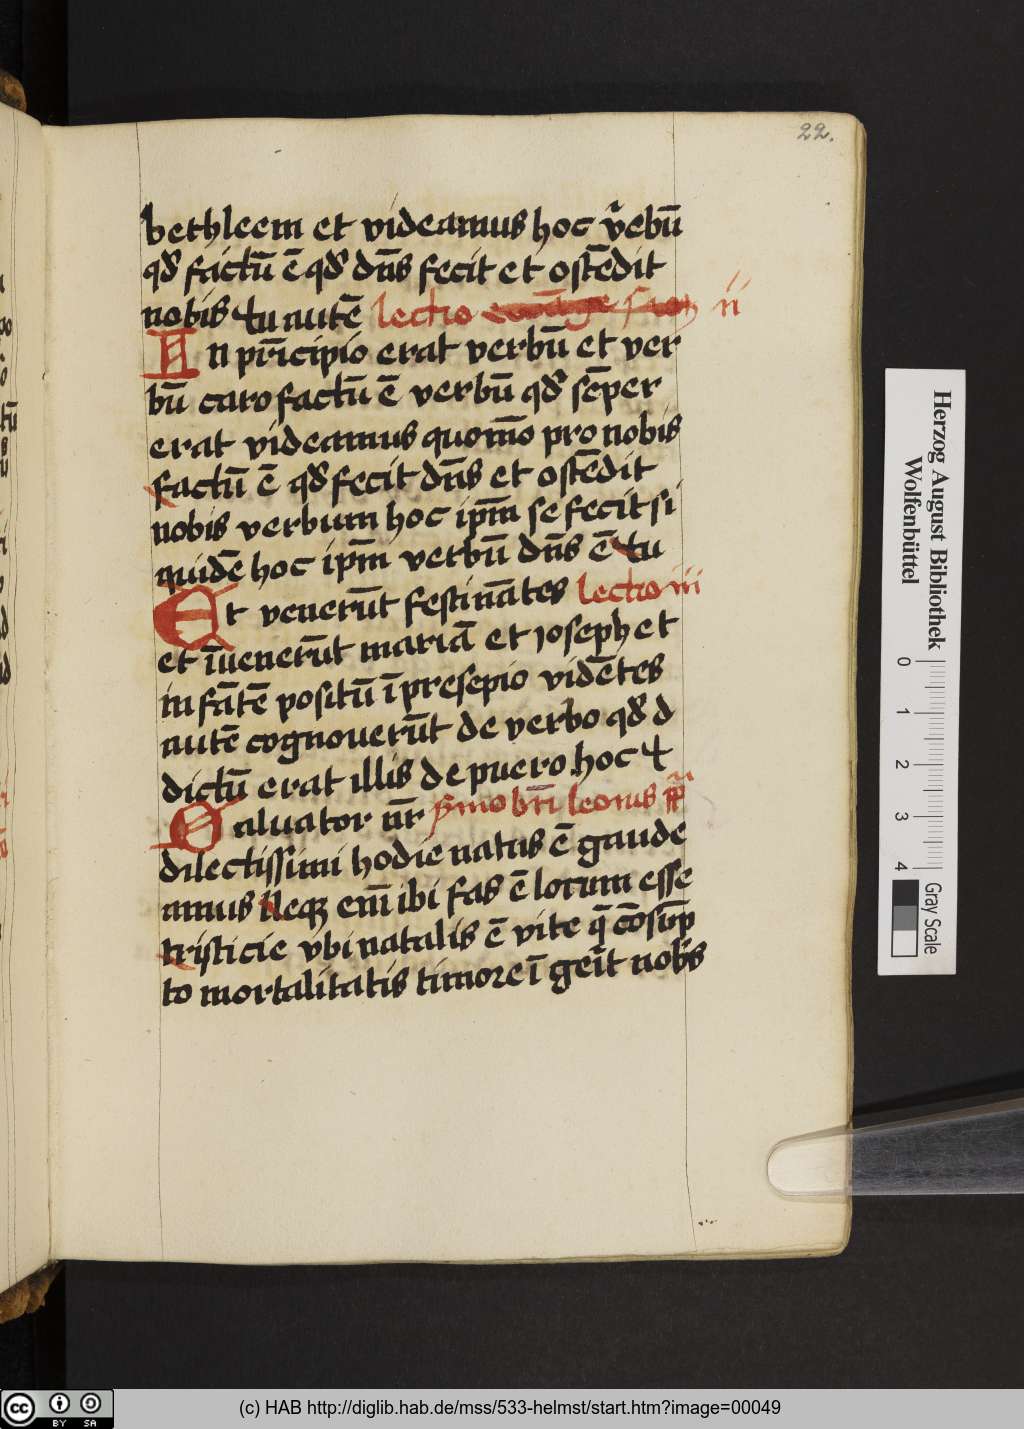 22.
bethleem et videamus hoc v̾ebū
qd̾ factū ē qd̾ dn̄s fecit et ostēdit
nobis tu autē lectio ii
In prīcipio erat verbū et ver
bū caro factū ē verbū qd̾ sēper
erat videamus quomō pro nobis
factū ē qd̾ fecit dn̄s et ostēdit
nobis verbum hoc ip̄m se fecit si
quidē hoc ip̄m verbū dn̄s ē tu
Et venerūt festinātes lectio iii
et īvenerūt mariā et ioseph et
infātē positū ī presepio vidētes
autē cognoverūt de verbo qd̾ d
dictū erat illis de puero hoc t
Saluator nr̄ br̄i leonis pp̄
dilectissimi hodie natus ē gaude
amus Neqꝫ em̄ ibi fas ē locum esse
tristicie vbi natalis ē vite q̄ cōsūp
to mortalitatis timore ī gerīt nobis
Herzog August Bibliothek
Wolfenbüttel
0 1 2 3 4
Gray Scale
cc BY SA
(c) HAB http://diglib.hab.de/mss/533-helmst/start.htm?image=00049